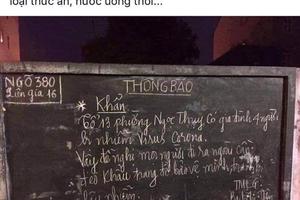 loại thức ăn, nước uống thôi...
NGÕ 380
THÔNG BÁO
* Khẩn
Tổ 13 phường Ngọc Thụy Có gia đình 4 người
bị nhiễm Virus Corona.
Vậy đề nghị mọi người đi ra ngoài cần
đeo khẩu trang để bảo vệ mình
lây nhiễm.